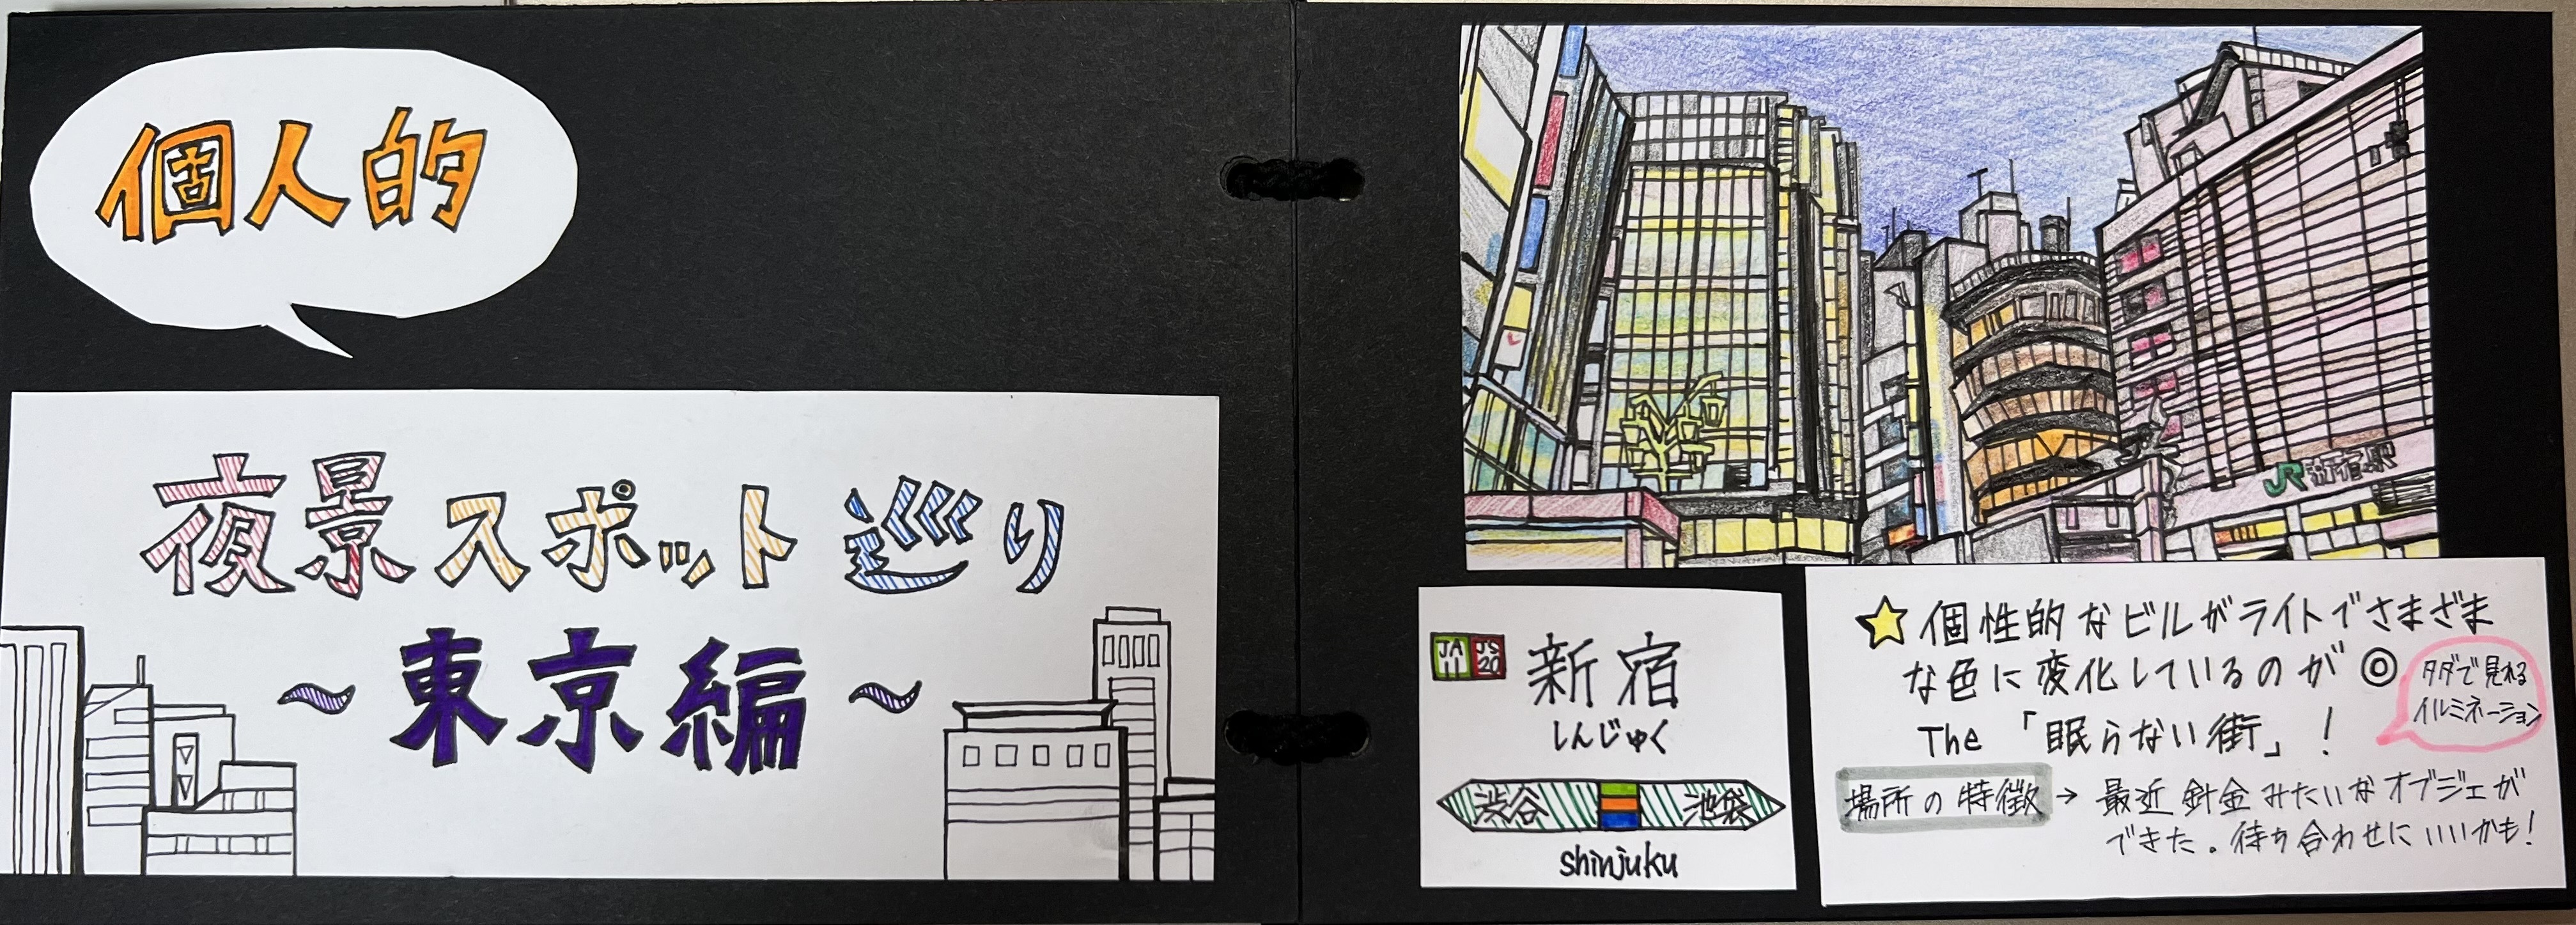 個人的
夜景スポット巡り
～東京編～
JR新宿駅
JA
11
JS
20
新宿
しんじゅく
渋谷
池袋
shinjuku
個性的なビルがライトでさまざま
な色に変化しているのが◎
The 「眠らない街」!
タダで見れる
イルミネーション
場所の特徴→最近針金みたいなオブジェが
できた。待ち合わせにいいかも!